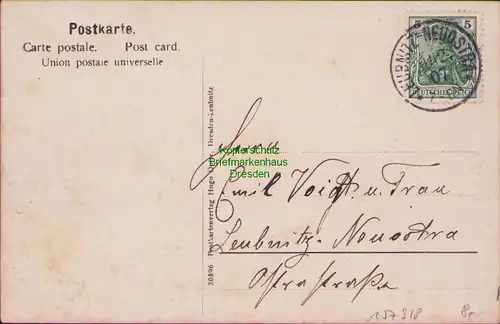 Postkarte.
Carte postale. Post card.
Union postale universelle
5 5
DEUTSCHES REICH
LEUBNITZ-NEUOSTRA
07
20896 Postkartenverlag Hugo Dresden-Leubnitz
Kopierschutz
Briefmarkenhaus
Dresden
Herrn
Emil Voigt u. Frau
Leubnitz-Neuostra
Ostrastraße
157318
8.-